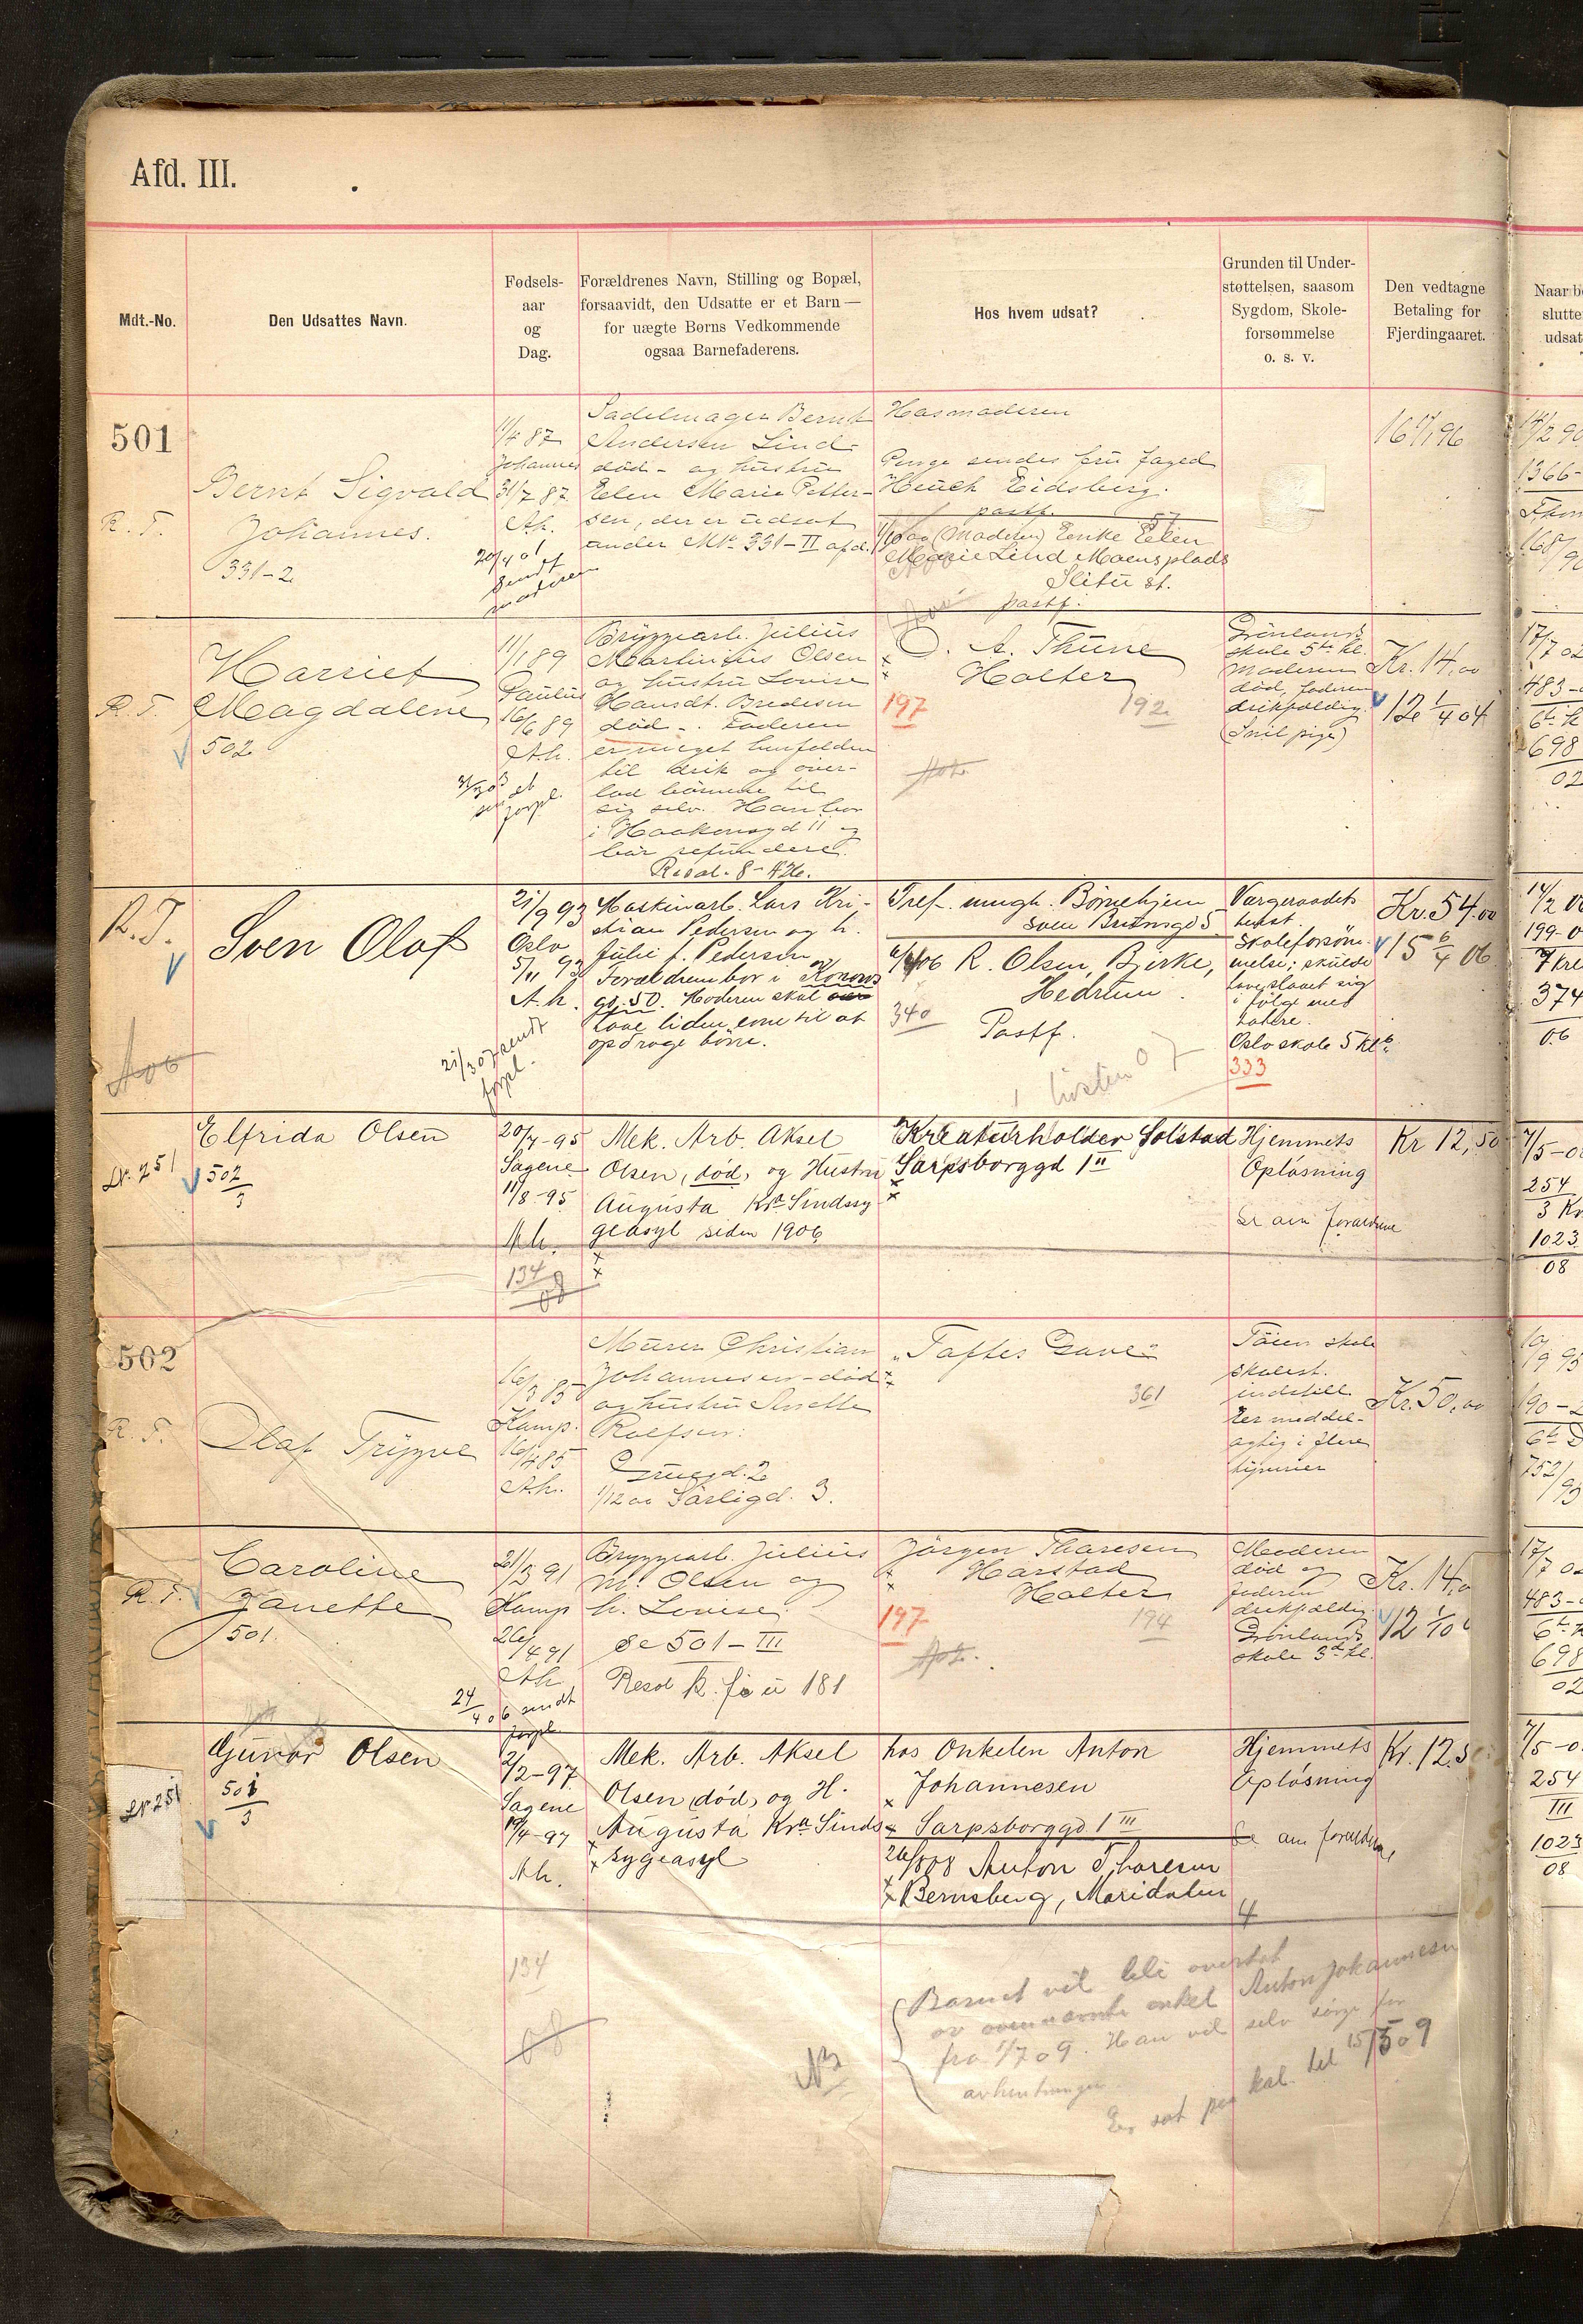 Afd. III.
Mdt.-No.
Den Udsattes Navn.
Fødsels-
aar
og
Dag.
Forældrenes Navn, Stilling og Bopæl,
forsaavidt, den Udsatte er et Barn —
for uægte Børns Vedkommende
ogsaa Barnefaderens.
Hos hvem udsat?
Grunden til Under-
støttelsen, saasom
Sygdom, Skole-
forsømmelse
o. s. v.
Den vedtagne
Betaling for
Fjerdingaaret.
Naar b
slutte
udsat
501
R. T.
Bernt Sigvald
Johannes.
331-2
11/4 87
Johannes
31/7 87
A.h.
20/4 01
sendt
moderen
Sadelmager Bernt
Andersen Lind-
död - og hustru
Elen Marie Petter-
sen, der er udsat
under Mt. 331-II afd.
Hos moderen
Penge sendes fru foged
Heuch Eidsberg.
postf.
57
(Moderen) Enke Elen
Marie Lind Moensplads
Slitu st.
postf.
16 1/1 96
R. T.
Harriet
Magdalene
502
11/1 89
Paulus
16/6 89
A.h.
Bryggearb. Julius
Martinius Olsen
og hustru Lovise
Hansdt. Bredesen
död - . Faderen
er meget henfalden
til drik og over-
lod börnene til
sig selv. Han bor
i Haakonsgd 11 og
bör refundere.
Resol. 8-
O. A. Thune
Holter
197
192
Grönlands
skole 5te kl.
Moderen
död, faderen
drikfældig.
(Snil pige)
Kr. 14,00
12 1/4 04
17/7 02
483-0
6te k
698
02
R.T.
Sven Olaf
21/9 93
Oslo
5/11 93
A.h.
21/3 07 sendt
forpl.
Maskinarb. Lars Kri-
stian Pedersen og h.
Julie f. Pedersen
Forældrene bor i Konows
gd. 50. Moderen skal
have liden evne til at
opdrage börn.
Tref. mngh. Börnehjem
Sven Brunsgd 5
06 R. Olsen, Bjerke,
Hedrum.
340
Postf.
høsten 07
Vergeraadets
beslut.
Skoleforsöm-
melse; skulde
have slaaet sig
i fölge med
Oslo skole 5 kl.
333
Kr. 54.00
15 6/4 06
14/2 0
199-0
374
06
Elfrida Olsen
Nr. 251
502/3
20/7-95
Sagene
11/8-95
A.h.
134
08
Mek. Arb. Aksel
Olsen, död, og Hustru
Augusta Kra Sindssy
geasyl siden 1906
Kreaturholder Solstad
Sarpsborggd 1 II
Hjemmets
Oplösning
Se am forældrene
Kr 12,50
7/5-0
254
3 Kr
1023
08
502
R. T.
Olaf Trygve
16/3 85
Kamp.
16/4 85
A.h.
Murer Christian
Johannesen - död
og hustru Anette
Rolfsen.
Gruegd. 2
1/12 00 Sarligd. 3.
„Toftes Gave"
361
Töien skole
skolest.
indstill.
Er meddel-
agtig i flere
tyverier
Kr. 50,00
R. T.
Caroline
Janette
501
21/3 91
Kamp
26/4 91
A.h.
24/4 06 sendt
forpl.
Bryggearb. Julius
M. Olsen og
h. Lovise.
Se 501 - III
Jörgen Thoresen
Harstad
Holter
197
194
Moderen
död og
faderen
drikfældig.
Grönlands
skole 3de kl.
Kr. 14,0
17/7 02
483-0
698
02
Gunvor Olsen
501/3
Nr 251
2/2-97
Sagene
19/4-97
A.h.
134
08
Mek. Arb. Aksel
Olsen, död, og H.
Augusta Kra Sinds
sygeasyl
hos Onkelen Anton
Johannesen
Sarpsborggd 1 III
26/8 08 Anton Thoresen
Bernsberg, Maridalen
Hjemmets
Oplösning
Se am forældrene
4
Kr. 12.5
7/5-0
254
III
1023
08
N3
Barnet vil bli overtat
av ovennævnte onkel Anton Johannesen
fra 1/7 09. Han vil selv sörge for
avhentningen
Er sat paa kal. til 15/5 09